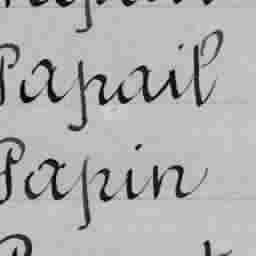 Papail
Papin